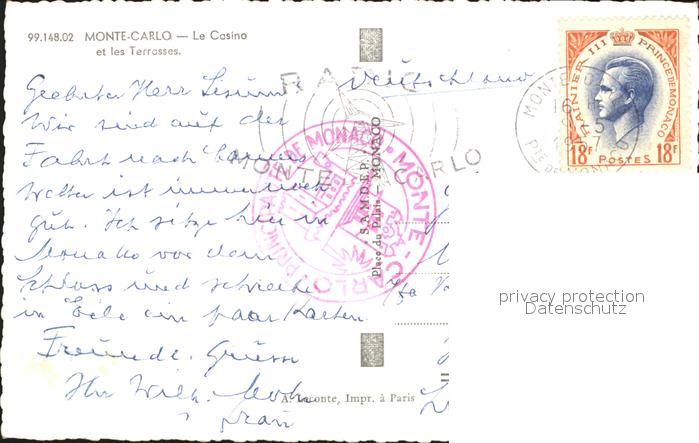 99.148.02 MONTE-CARLO — Le Casino
et les Terrasses.
Geehrter Herr
Wir sind auf der
Fahrt nach Cannes
Wetter ist immer noch
gut. Ich sitze hier in
Monako vor dem
Schloss und schreibe
in Eile ein paar Karten.
Freundl. Grüsse
Ihr Wilh.
Frau
Deutschland
RADIO
MONTE CARLO
PRINCIPAUTÉ DE MONACO
MONTE-CARLO
S.A.M.D.E.P.
Place du Palais - MONACO
A. Leconte, Impr. à Paris
RAINIER III PRINCE DE MONACO
18F POSTES 18F
MONTE-C
16 H
PTE DE MONACO
privacy protection
Datenschutz